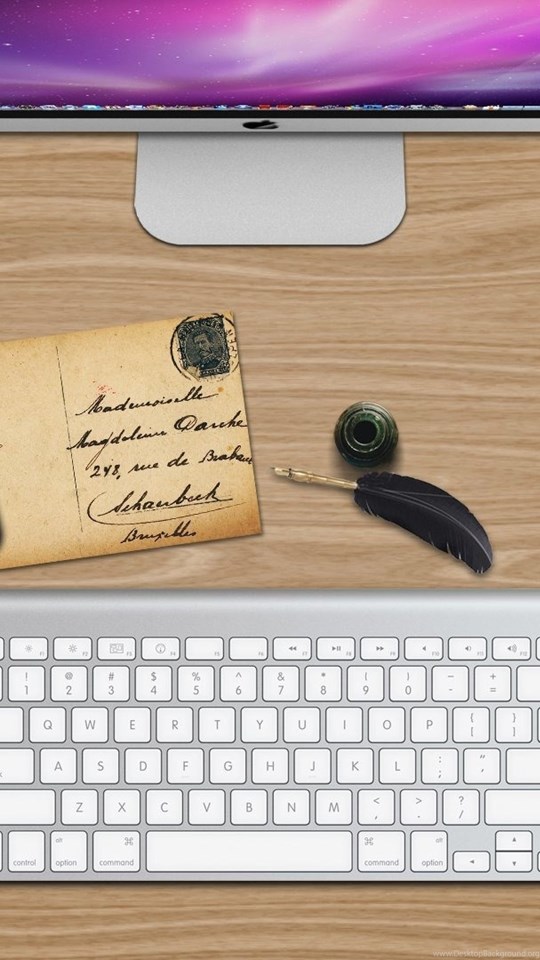 Mademoiselle
Magdeleine Darche
248, rue de Brabant
Schaerbeek
Bruxelles
F1 F2 F3 F4 F5 F6 F7 F8 F9 F10 F11 F12
! @ # $ % ^ & * ( ) _ +
1 2 3 4 5 6 7 8 9 0 - =
Q W E R T Y U I O P { }
[ ]
A S D F G H J K L : "
; '
Z X C V B N M < > ?
, . /
alt alt
control option command command option
www.DesktopBackground.org